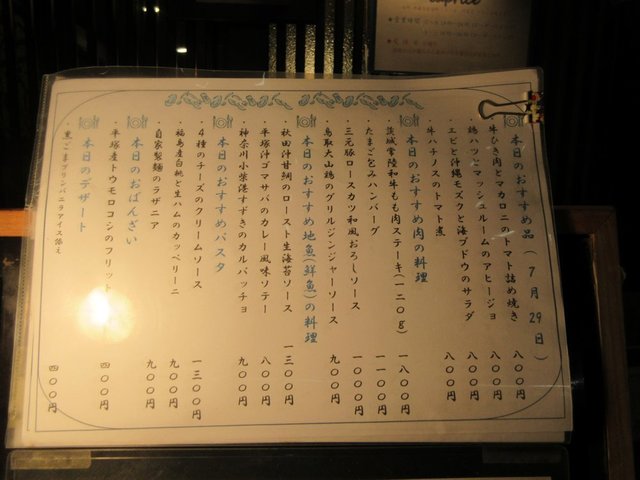 caprice
本日のおすすめ品(7月29日)
・牛ひき肉とマカロニのトマト詰め焼き 八〇〇円
・鶏ハツとマッシュルームのアヒージョ 八〇〇円
・エビと沖縄モズクと海ブドウのサラダ 八〇〇円
・牛ハチノスのトマト煮 八〇〇円
本日のおすすめ肉の料理
・茨城常陸和牛もも肉ステーキ(一二〇g) 一八〇〇円
・たまご包みハンバーグ 一一〇〇円
・三元豚ロースカツ和風おろしソース 一〇〇〇円
・鳥取大山鶏のグリルジンジャーソース 九〇〇円
本日のおすすめ地魚(鮮魚)の料理
・秋田沖甘鯛のロースト生海苔ソース 一三〇〇円
・平塚沖ゴマサバのカレー風味ソテー 八〇〇円
・神奈川小柴港すずきのカルパッチョ 九〇〇円
本日のおすすめパスタ
・4種のチーズのクリームソース 一三〇〇円
・福島産白桃と生ハムのカッペリーニ 九〇〇円
・自家製麺のラザニア 九〇〇円
本日のおばんざい
・平塚産トウモロコシのフリット 四〇〇円
本日のデザート
・黒ごまプリンバニラアイス添え 四〇〇円